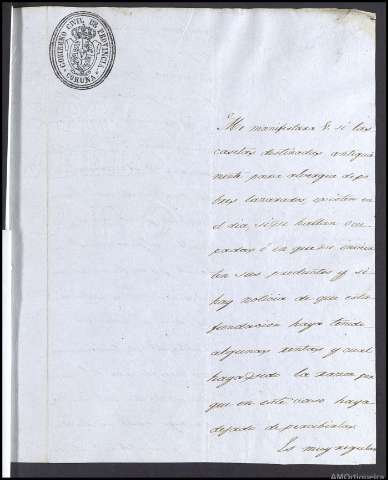 GOBIERNO CIVIL DE PROVINCIA
CORUÑA
Me manifestara V. si las
casetas destinadas antigua
mente para albergue de po
bres lazarados, existen en
el dia, si se hallan ocu
padas ó en que
sus productos y si
hay noticia de que esta
fundacion haya tenido
algunas rentas y cual
haya sido la razon por
que en este caso haya
dejado de percibirlas.
Es muy regular
AMOrtigueira